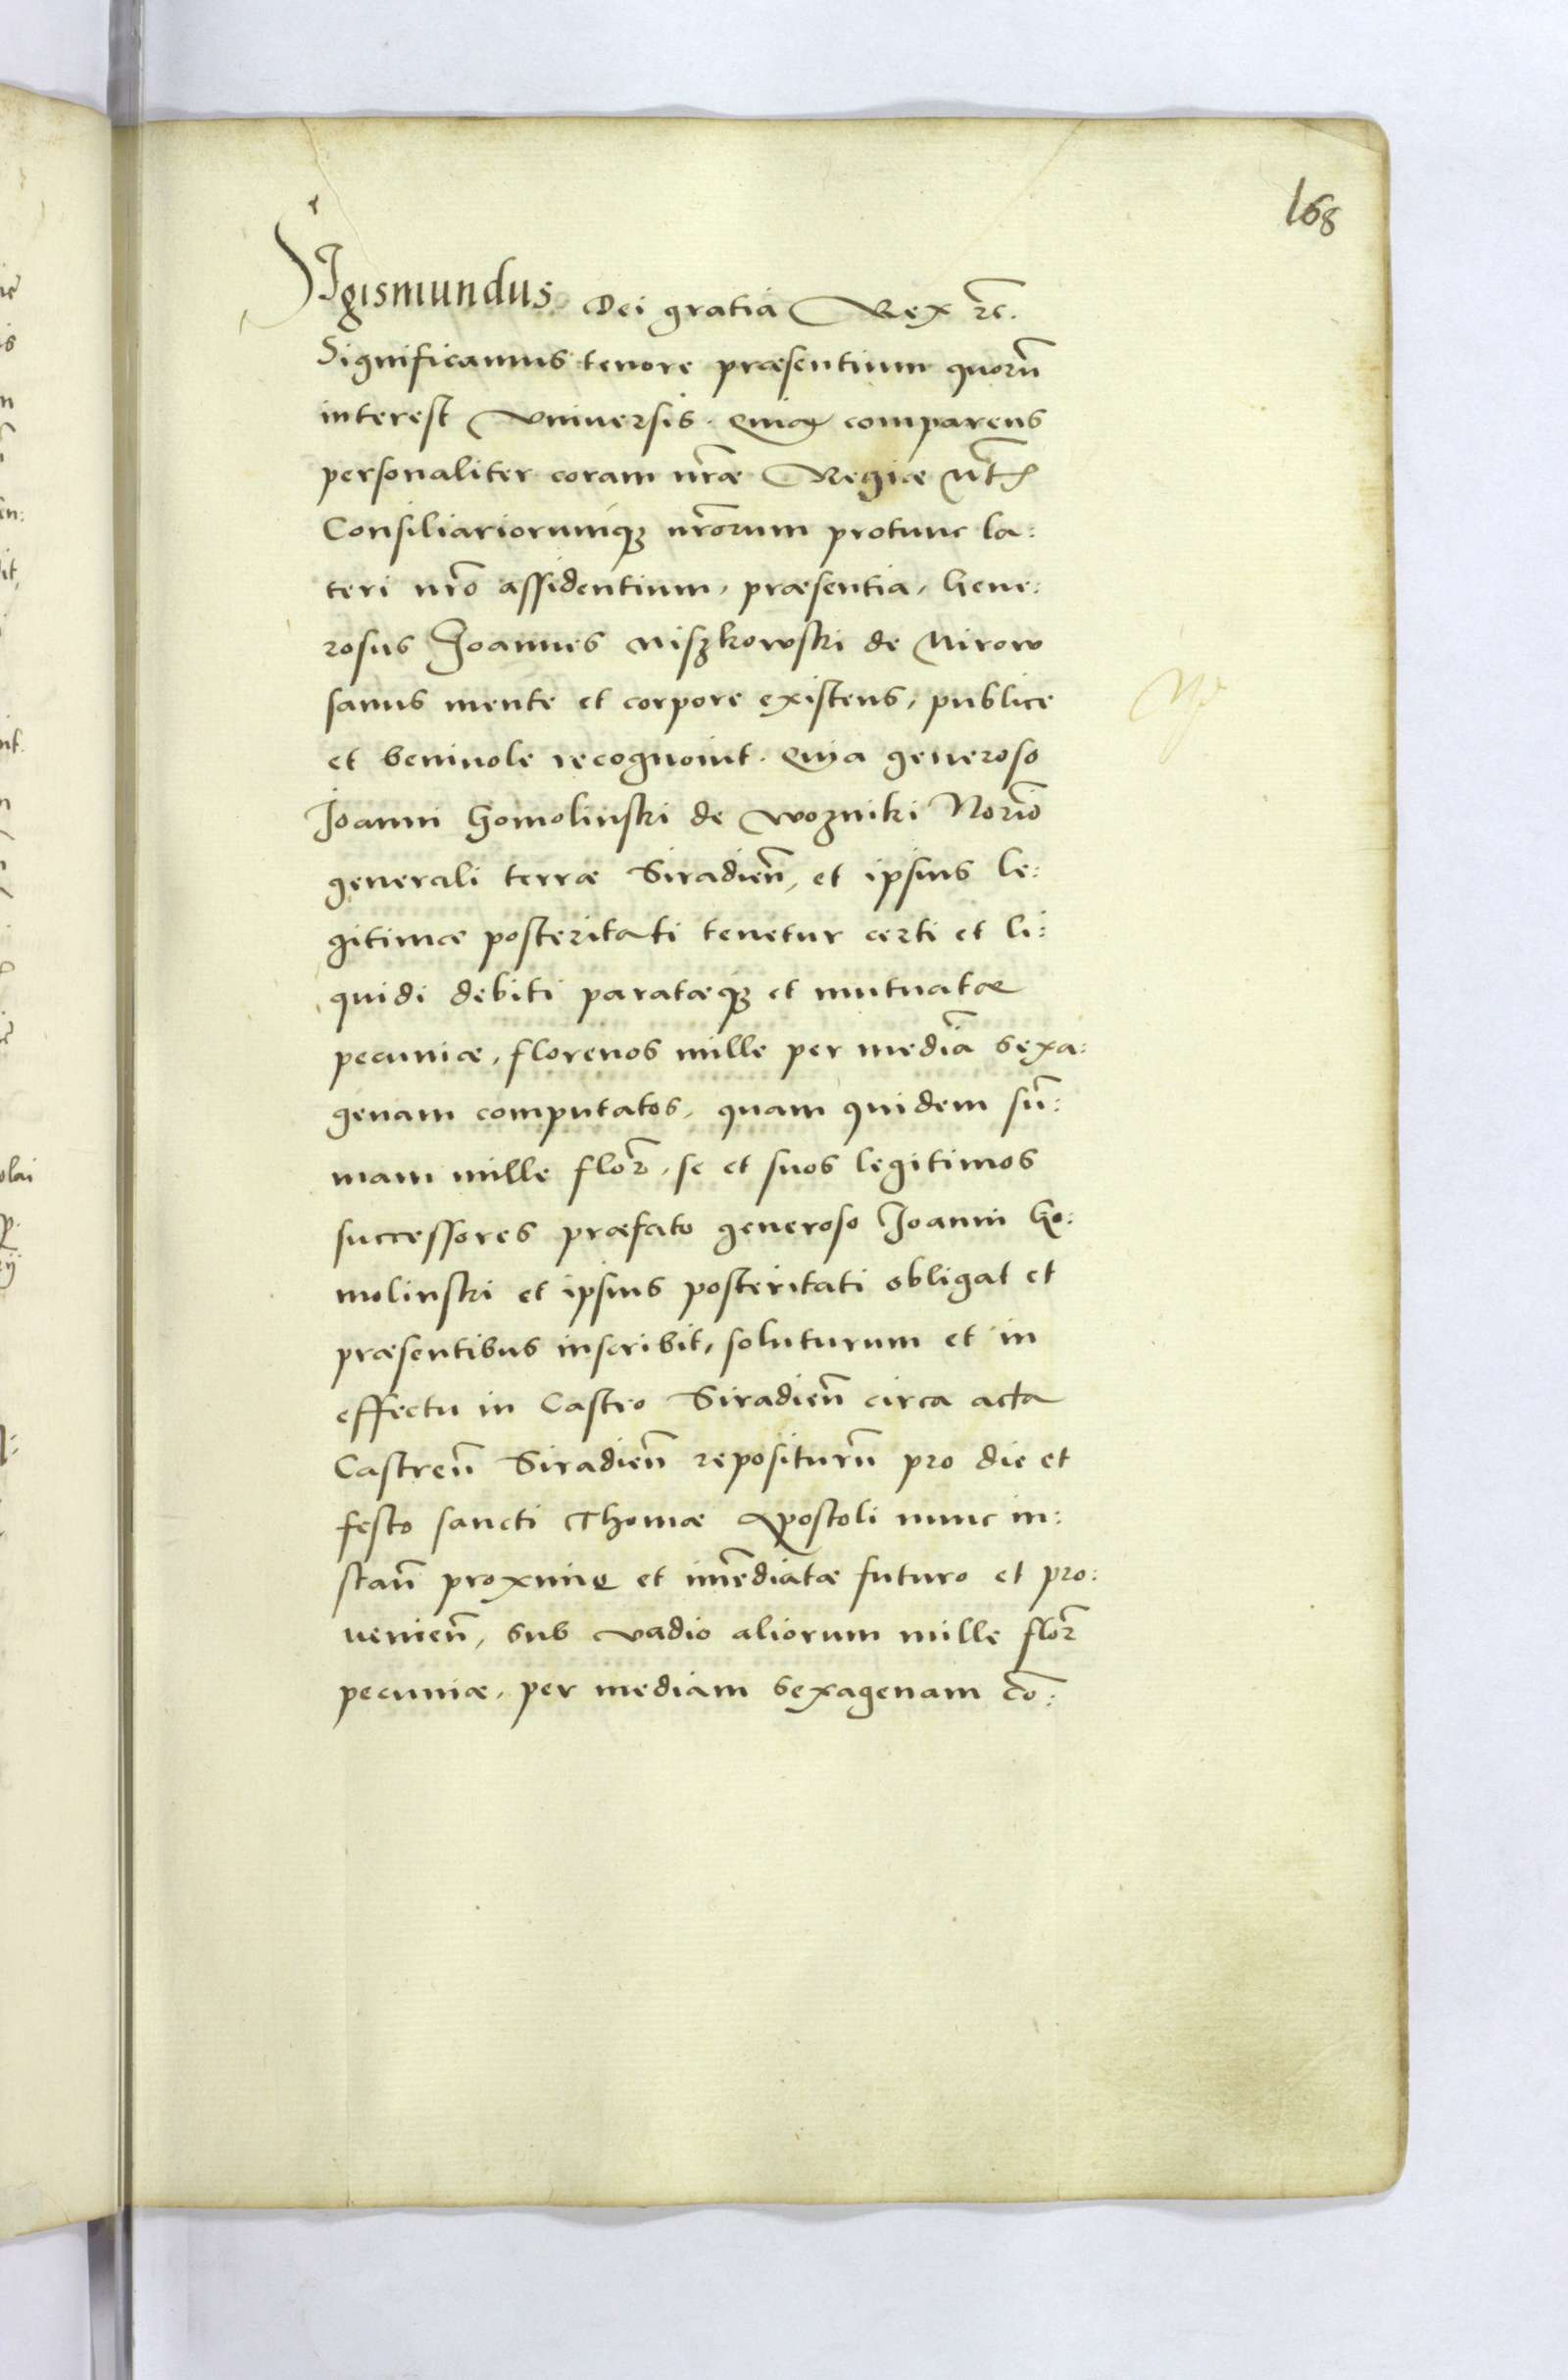 168
SIgismundus Dei gratia Rex etc.
Significamus tenore præsentium quorū
interest vniversis. Quia comparens
personaliter coram nr̃æ Regiæ Mt̃
Consiliariorumq3 nr̃orum protunc la:
teri nr̃o assidentium, præsentia, Gene:
rosus Joannes Niszkowski de Mirow
sanus mente et corpore existens, publice
et benivole recognovit. Quia generoso
Joanni Gomolinski de Wozniki Norio
generali terræ Siradien̄, et ipsius le:
gitimæ posteritati tenetur certi et li:
quidi debiti paratæq3 et mutuatæ
pecuniæ, florenos mille per mediā sexa:
genam computatos, quam quidem sū:
mam mille flor̄, se et suos legitimos
successores præfato generoso Joanni Go:
molinski et ipsius posteritati obligat et
præsentibus inscribit, soluturum et in
effectu in Castro Siradien̄ circa acta
Castren̄ Siradien̄ repositurū pro die et
festo sancti Thomæ Apostoli nunc in:
stan̄ proxime et im̄ediatæ futuro et pro:
venien̄, sub vadio aliorum mille flor̄
pecuniæ, per mediam sexagenam cō: